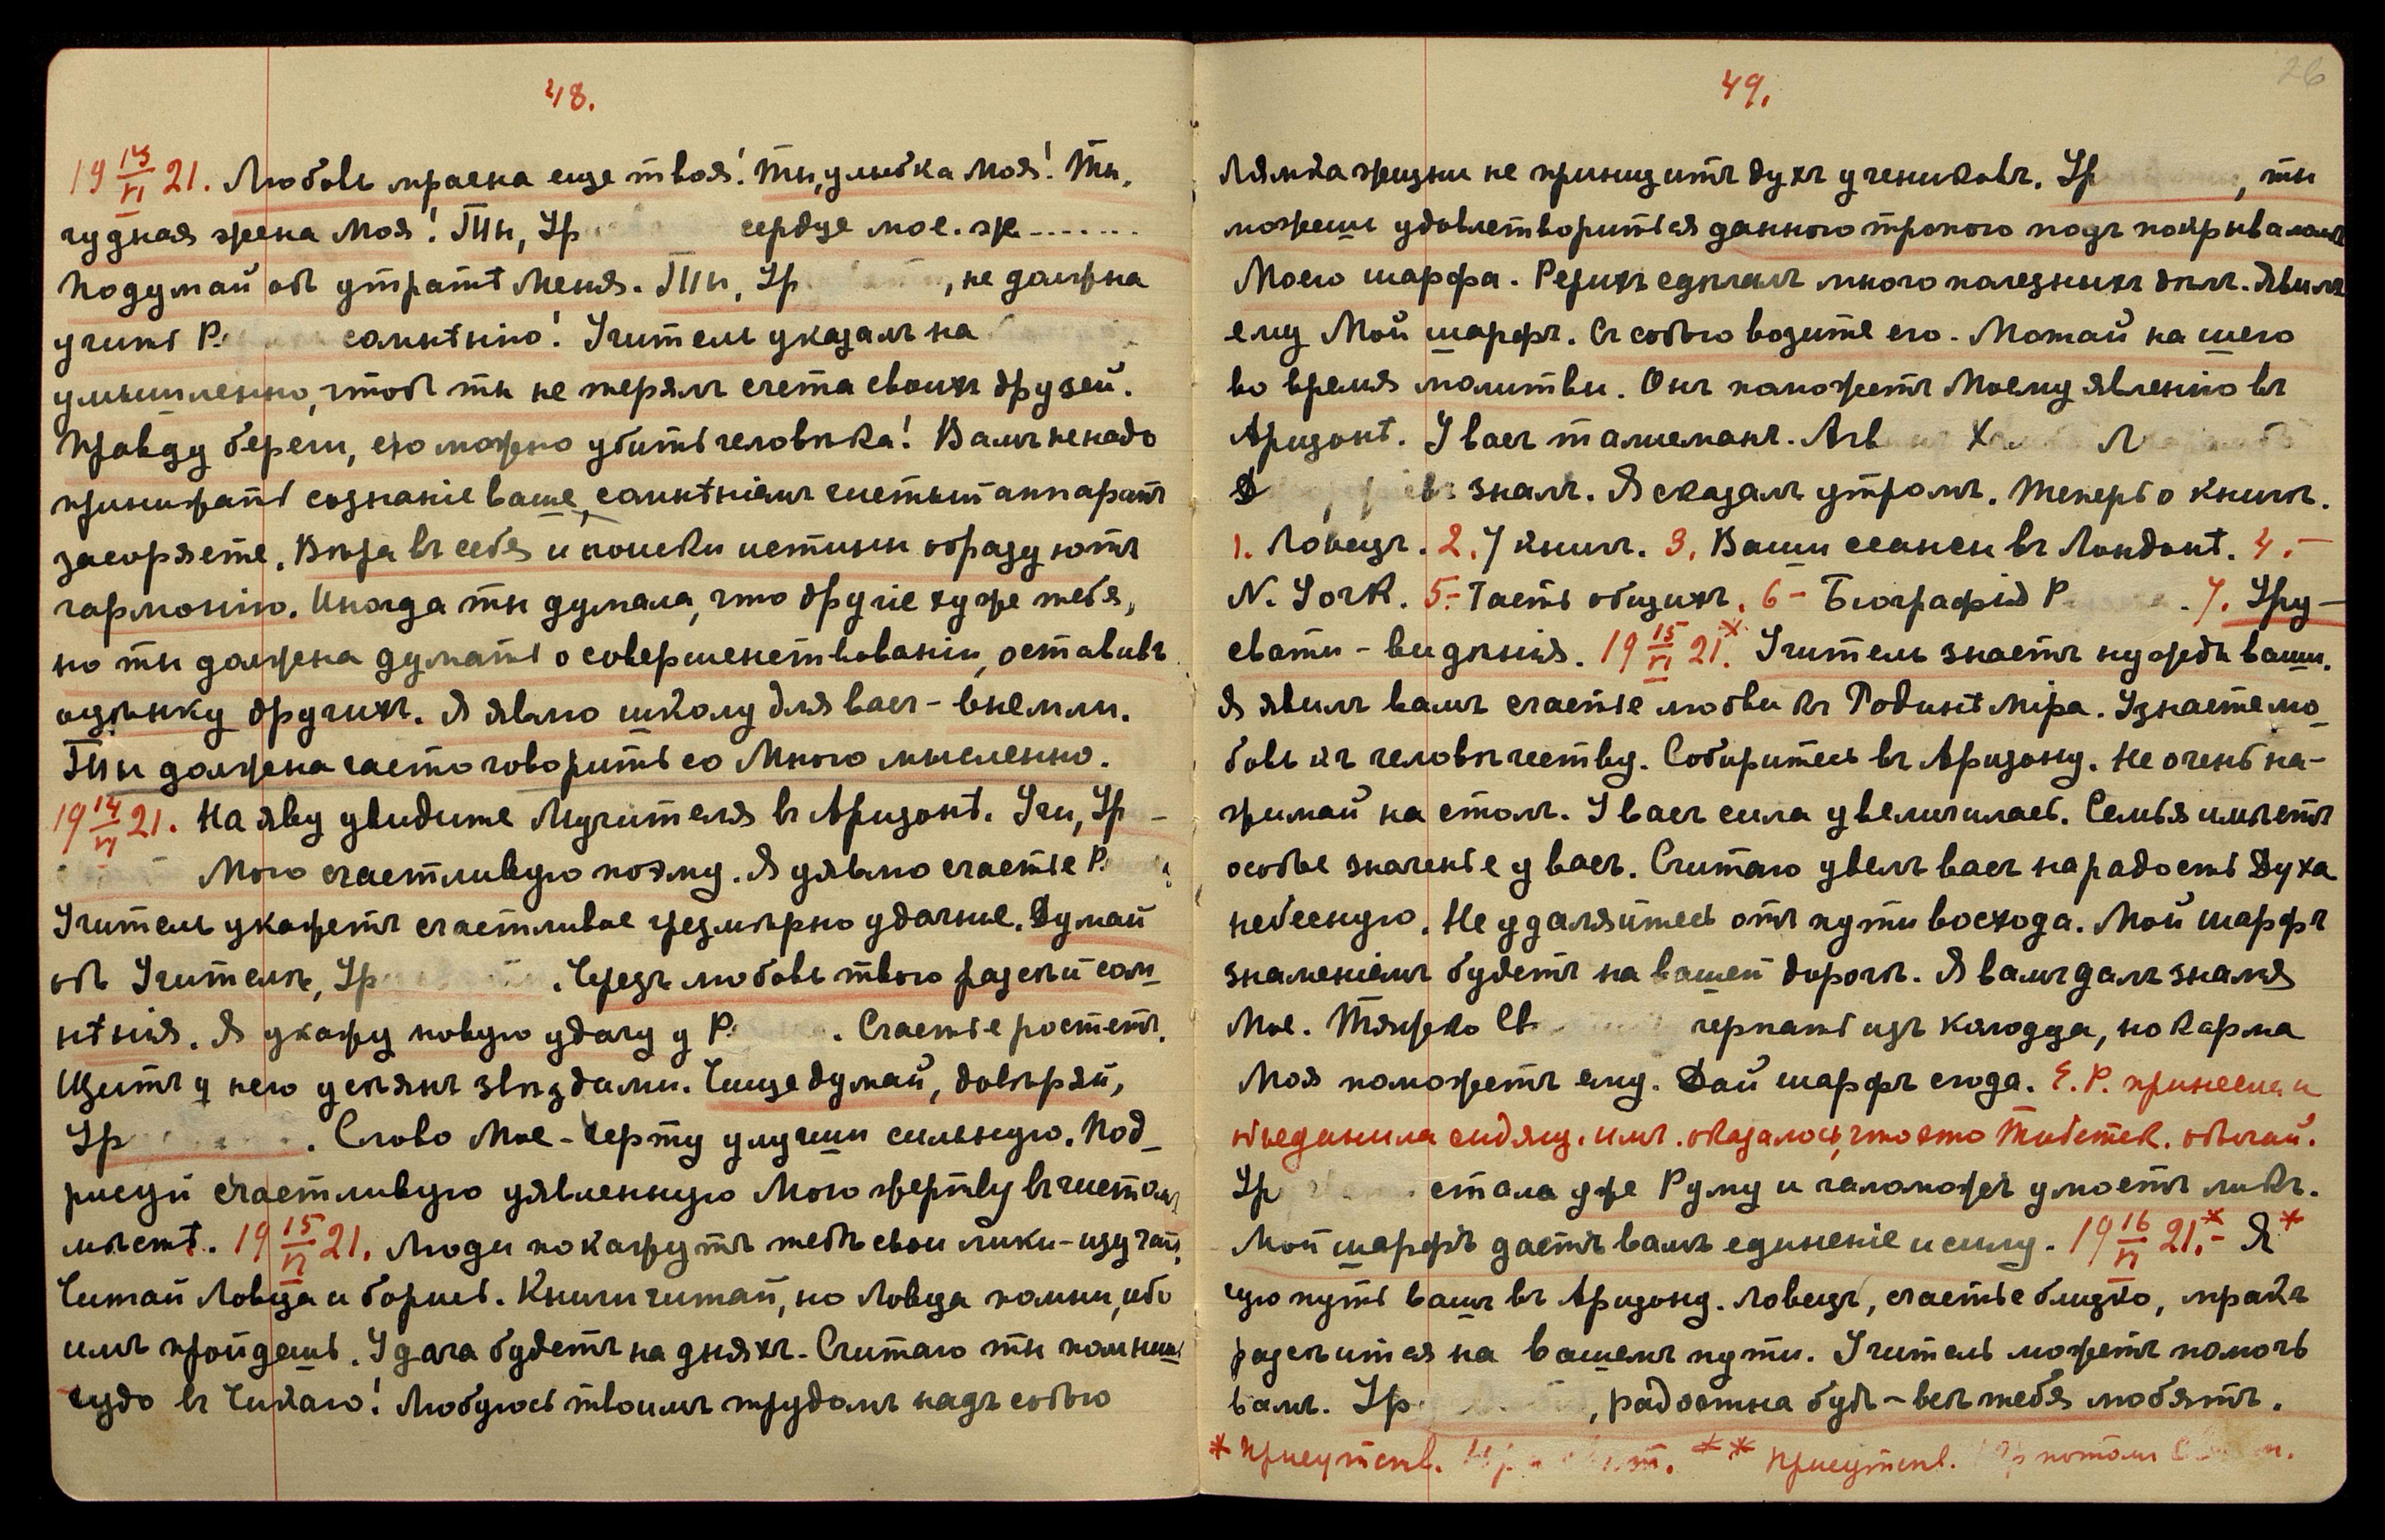 48.
19 13/VI 21. Любовь прасна еще твоя! Ты, улыбка Моя! Ты,
чудная жена Моя! Ты, Ур сердце мое. ж.......
Подумай объ утратѣ Меня. Ты, Ур , не должна
учить Р. сомнѣнію! Учитель указалъ на
умышленно, чтоб ты не терялъ счета своихъ друзей.
Правду береги, ею можно убить человѣка! Вамъ ненадо
принижать сознаніе ваше, сомнѣніемъ чистый аппаратъ
засоряете. Вѣра въ себя и поиски истины образуютъ
гармонію. Иногда ты думала, что другіе хуже тебя,
но ты должна думать о совершенствованіи, оставивъ
оцѣнку другихъ. Я являю школу для васъ – внемли.
Ты должна часто говорить со Мною мысленно.
19 14/VI 21. На яву увидите Мучителя въ Аризонѣ. Учи, Ур –
Мою счастливую поэму. Я уявлю счастіе Р.
Учитель укажетъ счастливое чрезмѣрно удачные. Думай
объ Учителѣ, Ур . Чрезъ любовь твою разсѣй сом_
нѣнія. Я укажу новую удачу у Р. . Счастье ростетъ.
Щитъ у него усѣянъ звѣздами. Чище думай, довѣряй,
Ур . Слово Мое – черту улучши сильную. Под_
рисуй счастливую уявленную Мою жертву въ чистомъ
мѣстѣ. 19 15/VI 21. Люди покажутъ тебѣ свои лики – изучай,
Читай Ловца и борись. Книги читай, но Ловца помни, ибо
имъ пройдешь. Удача будетъ на дняхъ. Считаю ты помнишь
чудо въ Чикаго! Любуюсь твоимъ трудомъ надъ собою
49.
26
Лямка жизни не принизитъ духъ учениковъ. Ур , ты
можешь удовлетвориться данною тропою подъ покрываломъ
Моего шарфа. Рерихъ сдѣлалъ много полезныхъ дѣлъ. Явилъ
ему Мой шарфъ. Съ собою возите его. Мотай на шею
во время молитвы. Онъ поможетъ Моему явленію въ
Аризонѣ. У васъ талисманъ. Ав Х Л
Д зналъ. Я сказалъ утромъ. Теперь о книгѣ.
1. Ловецъ. 2. 7 книгъ. 3. Ваши сеансы въ Лондонѣ. 4. –
N. York. 5.– Часть общихъ. 6 – Біографія Р . 7. Уру –
свати – видѣнія. 19 15/VI 21.* Учитель знаетъ нужды ваши.
Я явилъ вамъ счастіе любви къ Родинѣ міра. Узнаете лю_
бовь къ человѣчеству. Собиритесь въ Аризону. Не очень на–
жимай на столъ. У васъ сила увеличилась. Семья имѣетъ
особое значенье у васъ. Считаю увелъ васъ на радость Духа
небесную. Не удаляйтесь отъ пути восхода. Мой шарфъ
знаменіемъ будетъ на вашей дорогѣ. Я вамъ далъ знамя
Мое. Тяжко Св черпать изъ колодца, но карма
Моя поможетъ ему. Дай шарфъ сюда. Е. Р. принесла и
объединила сидящ. имъ. оказалось, что это Тибетск. обычай.
Ур стала уже Руму и чаломожъ умоетъ ликъ.
Мой шарфъ дастъ вамъ единеніе и силу. 19 16/VI 21.*– Я*
чую путь вашъ въ Аризону. Ловецъ, счастье близко, мракъ
разсѣится на вашемъ пути. Учитель можетъ помочь
вамъ. Ур , радостна будь – всѣ тебя любятъ.
* Присутств. ** Присутств. потомъ